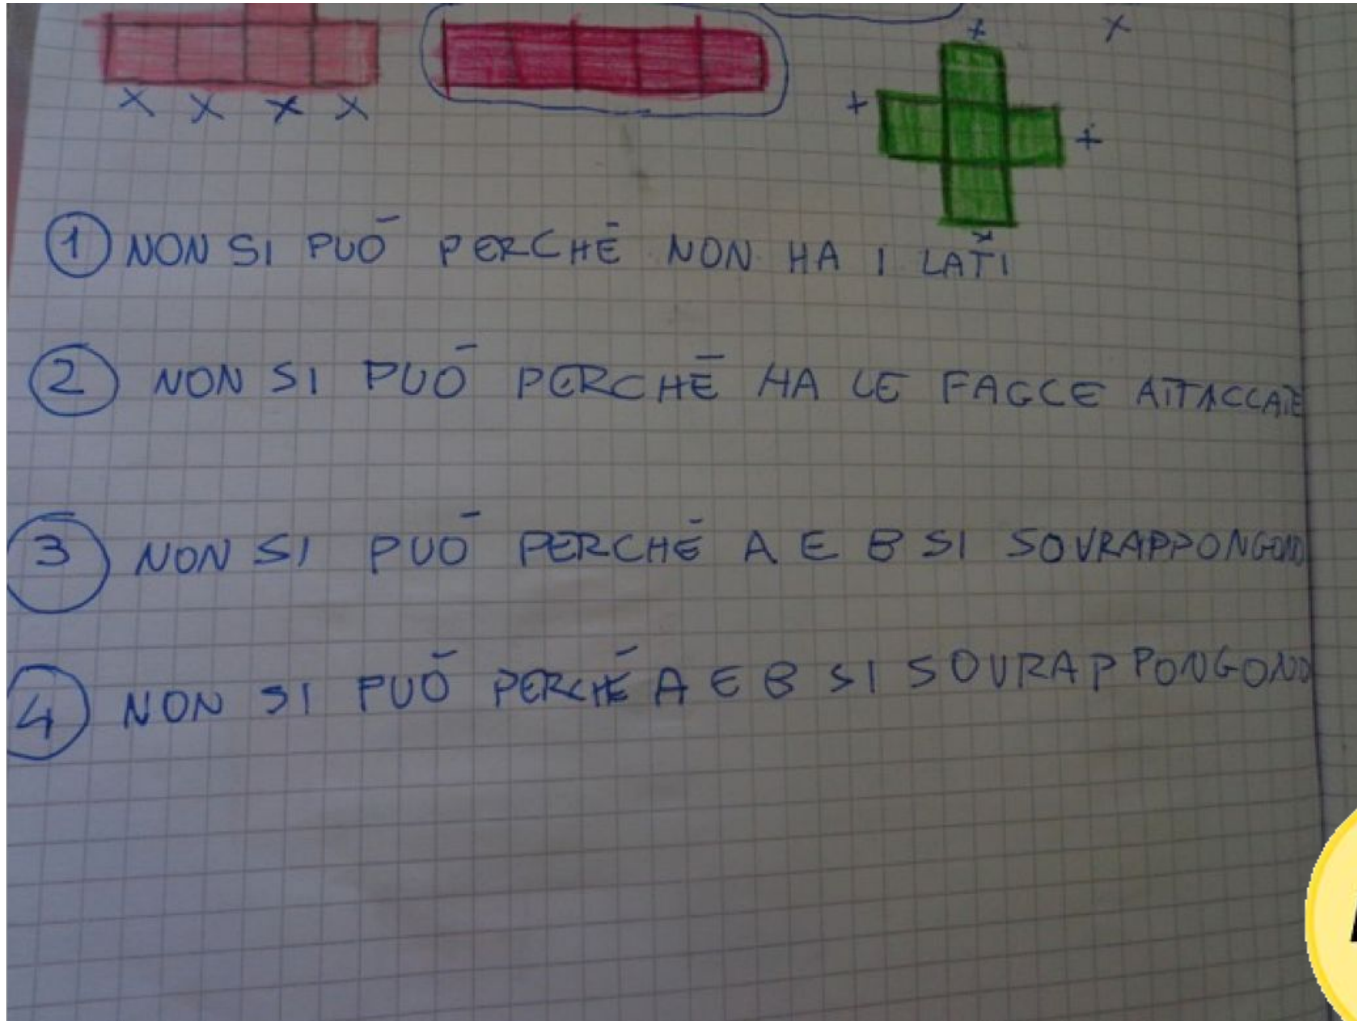 1 NON SI PUÒ PERCHÉ NON HA I LATI
2 NON SI PUÒ PERCHÉ HA LE FACCE ATTACCATE
3 NON SI PUÒ PERCHÉ A E B SI SOVRAPPONGONO
4 NON SI PUÒ PERCHÉ A E B SI SOVRAPPONGONO